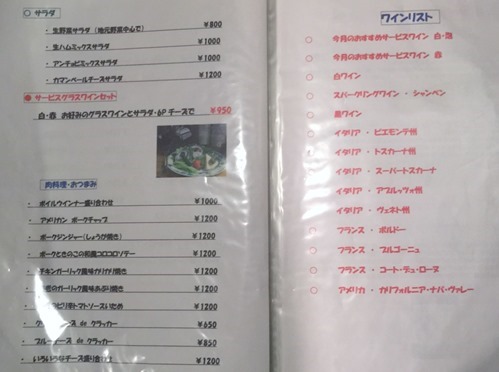 ○ サラダ
・ 生野菜サラダ (地元野菜中心で) ¥800
・ 生ハムミックスサラダ ¥1000
・ アンチョビミックスサラダ ¥1000
・ カマンベールチーズサラダ ¥1200
● サービスグラスワインセット
白・赤 お好みのグラスワインとサラダ・6Pチーズで ¥950
肉料理・おつまみ
・ ボイルウインナー盛り合わせ ¥1000
・ アメリカン ポークチャップ ¥1200
・ ポークジンジャー(しょうが焼き) ¥1200
・ ポークときのこの和風コロコロソテー ¥1200
・ チキンガーリック風味かりかり焼き ¥1200
のガーリック風味あぶり焼き ¥1200
ピリ辛トマトソースいため ¥1200
チーズ de クラッカー ¥650
・ ブルーチーズ de クラッカー ¥850
・ いろいろなチーズ盛り合わせ ¥1200
ワインリスト
○ 今月のおすすめサービスワイン 白・泡
○ 今月のおすすめサービスワイン 赤
○ 白ワイン
○ スパークリングワイン ・ シャンペン
○ 黒ワイン
○ イタリア ・ ピエモンテ州
○ イタリア ・ トスカーナ州
○ イタリア ・ スーパートスカーナ
○ イタリア ・ アブルッツォ州
○ イタリア ・ ヴェネト州
○ フランス ・ ボルドー
○ フランス ・ ブルゴーニュ
○ フランス ・ コート・デュ・ローヌ
○ アメリカ ・ カリフォルニア・ナパ・ヴァレー